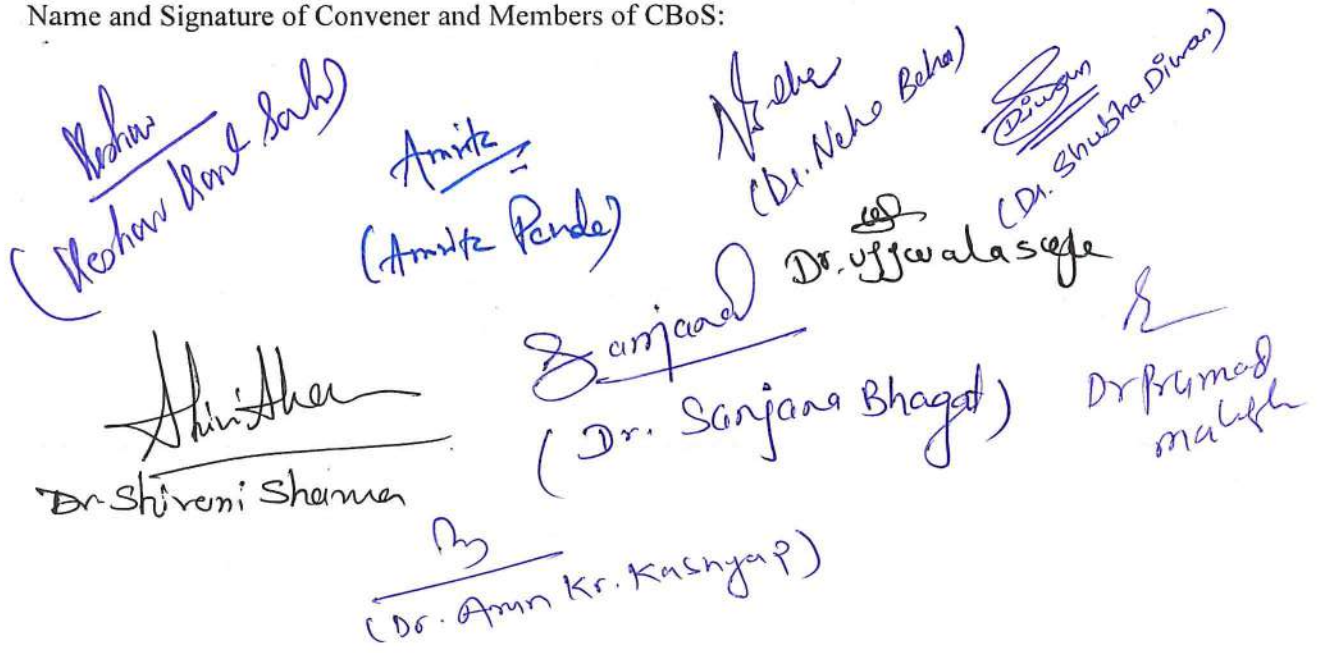 Name and Signature of Convener and Members of CBoS:
Keshav
(Keshav Kant Sahu)
Amrita
(Amrita Pande)
Neha
(Dr. Neha Behar)
Diwan
(Dr. Shubha Diwan)
Dr. Ujjwala
Sanjana
(Dr. Sanjana Bhagat)
Dr Pramod
Dr Shivani Sharma
(Dr. Arun Kr. Kashyap)